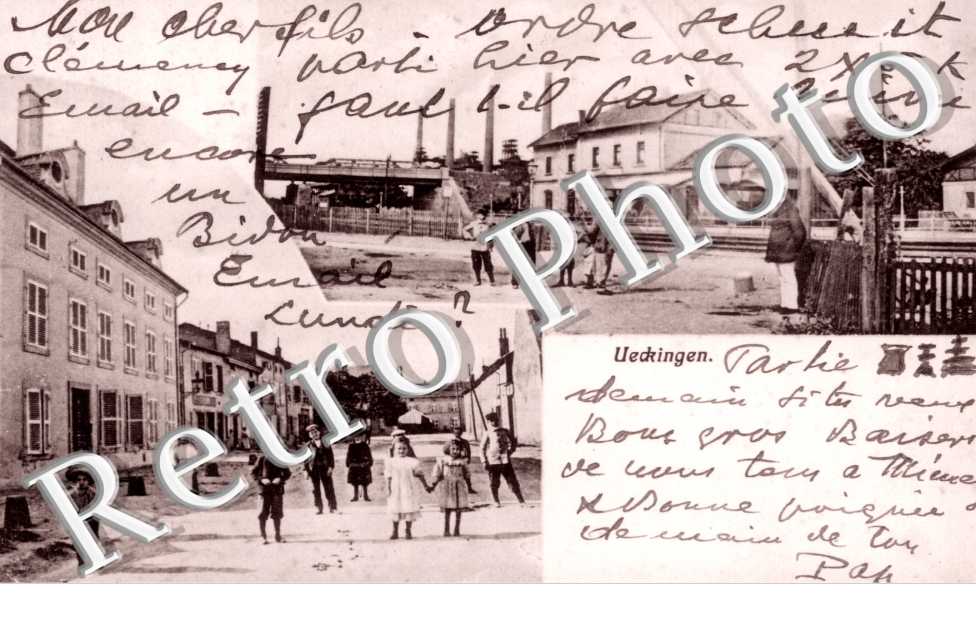 Mon cher fils - ordre schueit
Clémency parti hier avec 2
Email - faut-il faire
encore
un
Bidon
Email
Lundi ?
Retro Photo
Ueckingen.
Partie
demain si tu veux
Bons gros Baisers
de nous tous a Mimi
& Bonne poignée
de main de ton
Pap